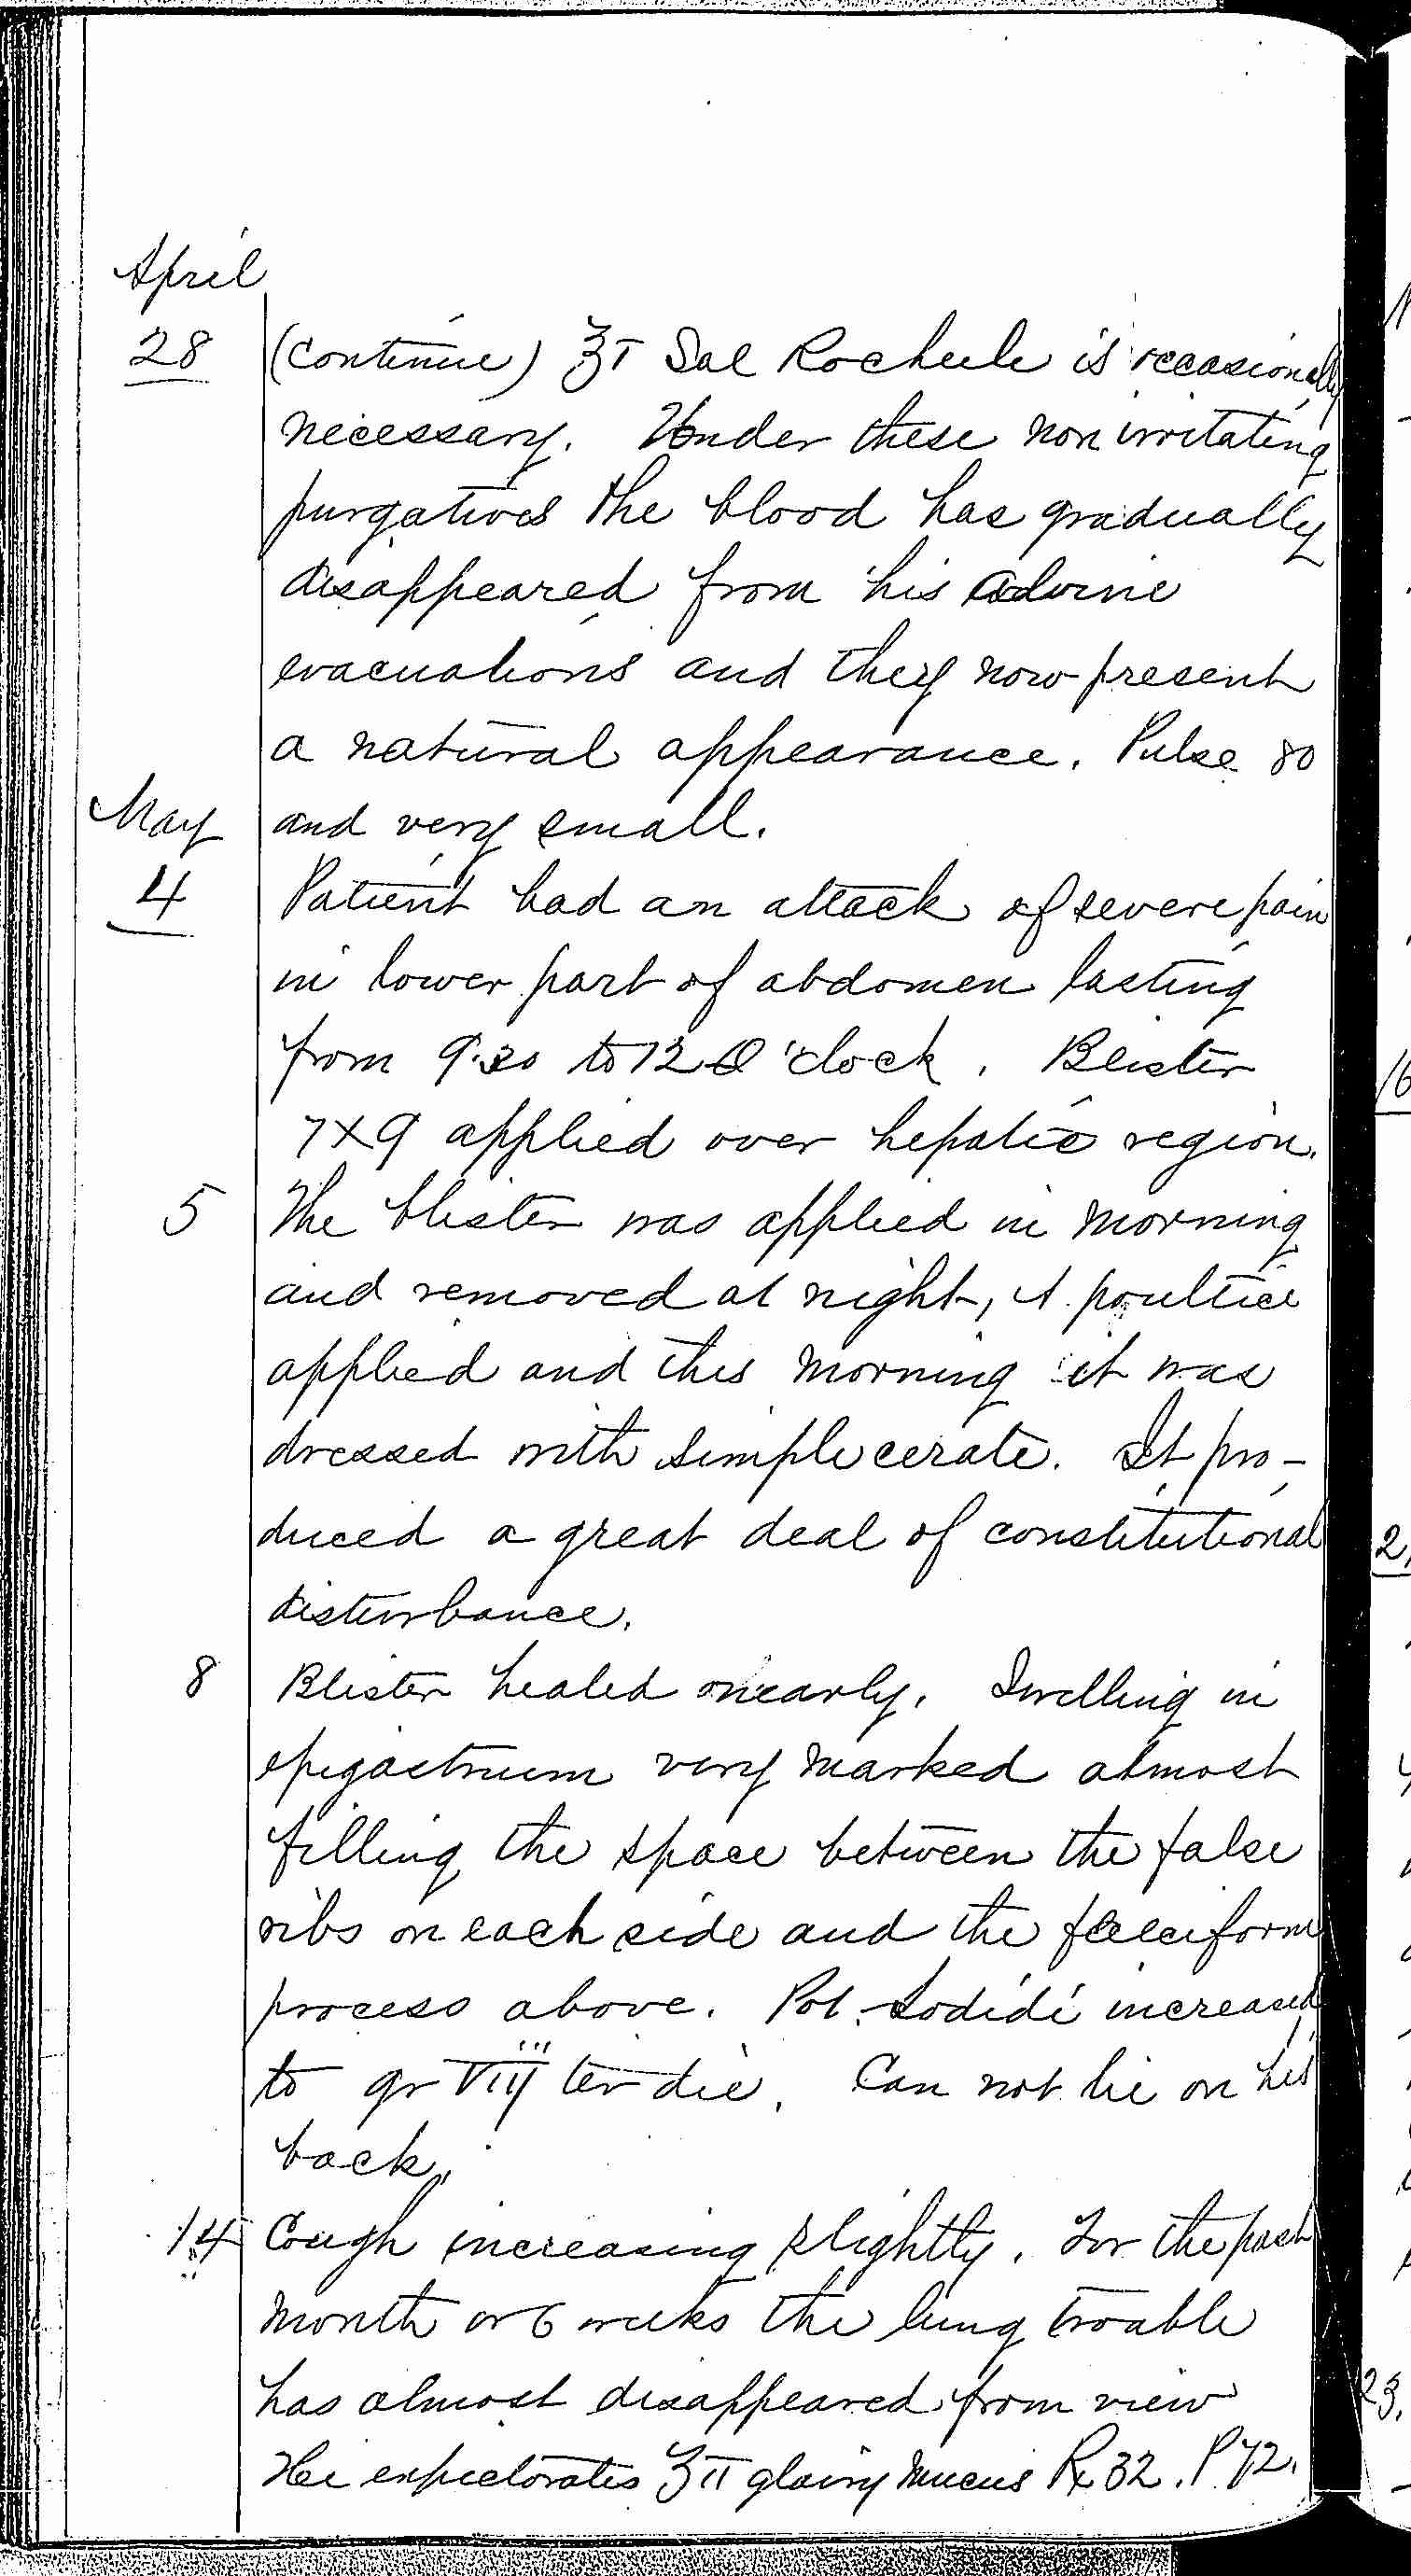 April
28 (continue) ℥I Sal Rochele is occasionally
necessary. Under these non irritating
purgatives the blood has gradually
disappeared from his alvine
evacuations and they now present
a natural appearance. Pulse 80
May and very small.
4 Patient had an attack of severe pain
in lower part of abdomen lasting
from 9.30 to 12 O'clock. Blister
7X9 applied over hepatic region.
5 The blister was applied in morning
and removed at night, A poultice
applied and this morning it was
dressed with simple cerate. It pro-
duced a great deal of constitutional
disturbance.
8 Blister healed nearly. Swelling in
epigastrium very marked almost
filling the space between the false
ribs on each side and the
process above. Pot. Iodidi increased
to gr VIIJ ter die. Can not lie on his
back.
14 Cough increasing slightly. For the past
month or 6 weeks the lung trouble
has almost disappeared from view
He expectorates ℥II glairy mucus R 32. P 72.